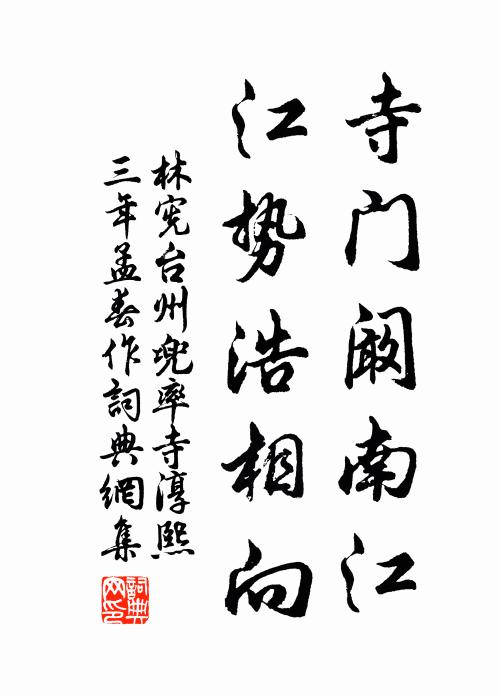 寺门阚南江
江势浩相向
林宪台州兜率寺淳熙
三年孟春作詞典網集
詞典网印